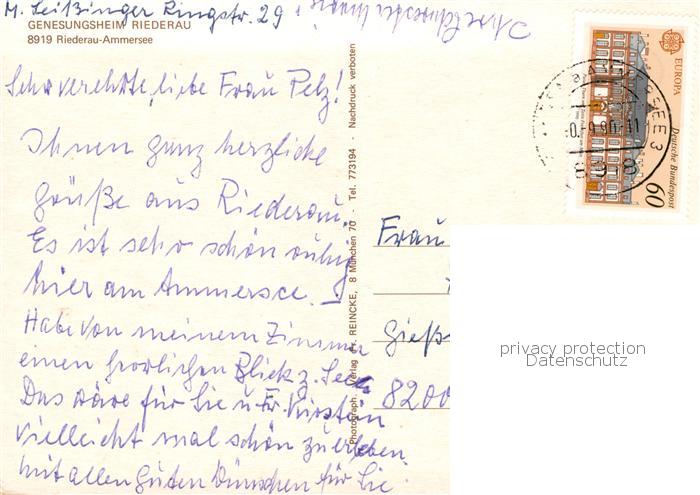 M. Leißinger Ringstr. 29
GENESUNGSHEIM RIEDERAU
8919 Riederau-Ammersee
Sehr verehrte, liebe Frau Pelz!
Ihnen ganz herzliche
Grüße aus Riederau.
Es ist sehr schön ruhig
hier am Ammersee. –
Habe von meinem Zimmer
einen herrlichen Blick z. See.
Das wäre für Sie u. Fr. Kirstein
vielleicht mal schön zu erleben.
Mit allen guten Wünschen für Sie
Photograph. Verlag Fr. REINCKE, 8 München 70 - Tel. 773194 - Nachdruck verboten
EUROPA
Deutsche Bundespost
60
AMMERSEE 3
8918
Frau
Gieß
8200
privacy protection
Datenschutz